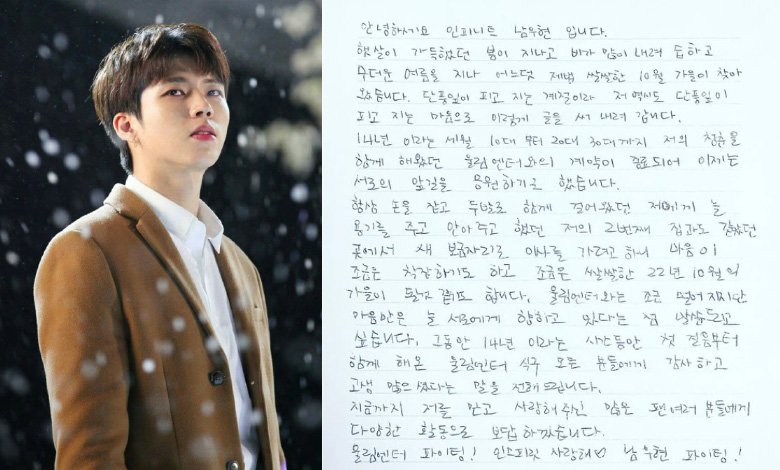 안녕하세요 인피니트 남우현 입니다.
햇살이 가득했던 봄이 지나고 비가 많이 내려 습하고
무더운 여름을 지나 어느덧 제법 쌀쌀한 10월 가을이 찾아
왔습니다. 단풍잎이 피고 지는 계절이라 저 역시도 단풍잎이
피고 지는 마음으로 이렇게 글을 써 내려 갑니다.
14년 이라는 세월 10대 부터 20대 30대까지 저의 청춘을
함께 해왔던 울림엔터와의 계약이 종료되어 이제는
서로의 앞길을 응원하기로 했습니다.
항상 손을 잡고 두발로 함께 걸어왔던 저에게 늘
용기를 주고 안아주고 했던 저의 2번째 집과도 같았던
곳에서 새 보금자리로 이사를 가려고 하니 마음이
조금은 착잡하기도 하고 조금은 쌀쌀한 22년 10월의
가을이 달고 쓰기도 합니다. 울림엔터와는 조금 떨어지지만
마음만은 늘 서로에게 향하고 있다는 점 말씀드리고
싶습니다. 그동안 14년 이라는 시간동안 첫 걸음부터
함께 해온 울림엔터 식구 모든 분들에게 감사하고
고생 많으셨다는 말을 전해드립니다.
지금까지 저를 믿고 사랑해주신 많은 팬여러분들에게
다양한 활동으로 보답하겠습니다.
울림엔터 파이팅! 인스피릿 사랑해♡ 남우현 파이팅!